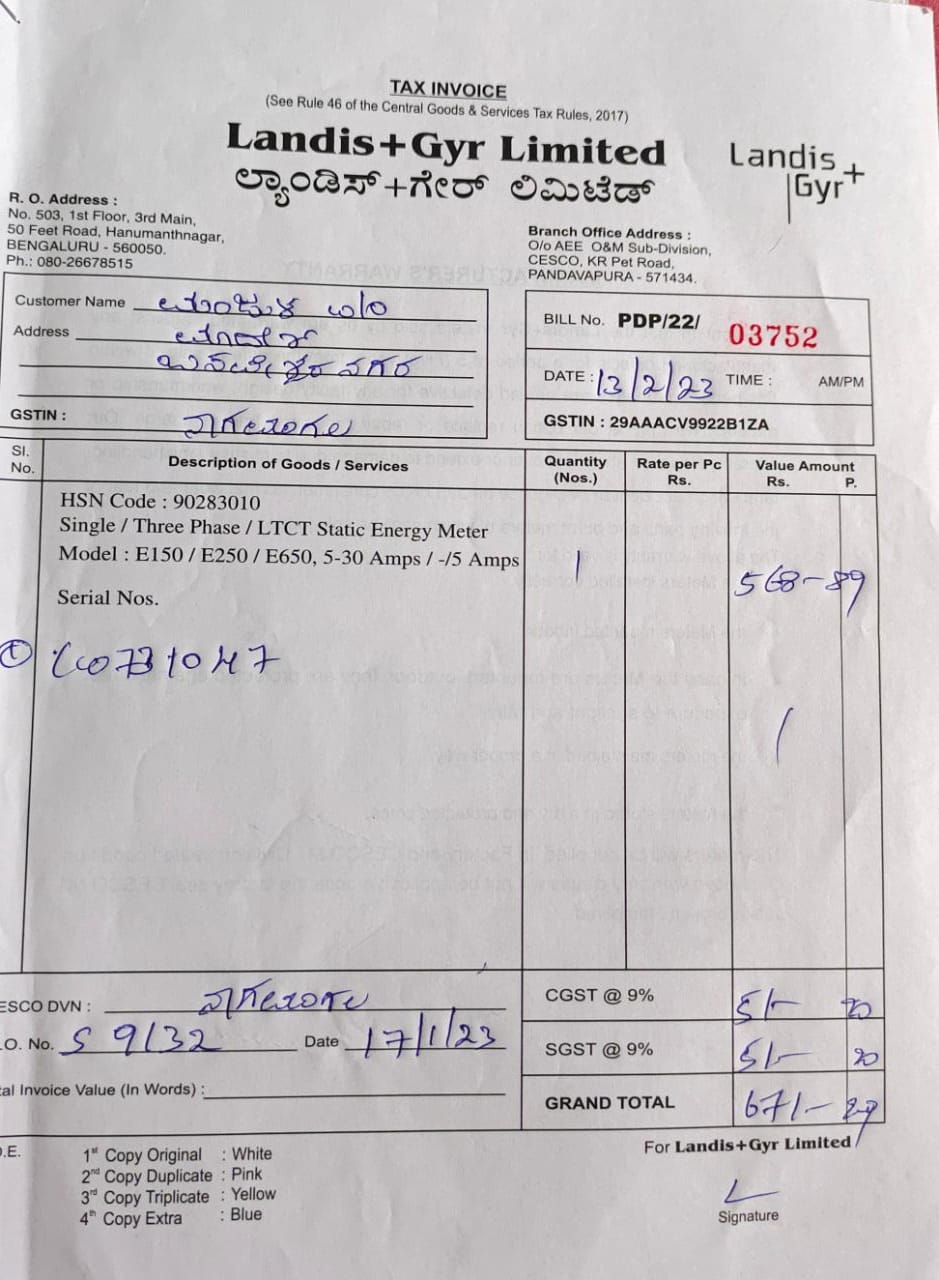 TAX INVOICE
(See Rule 46 of the Central Goods & Services Tax Rules, 2017)
Landis+Gyr Limited
ಲ್ಯಾಂಡಿಸ್+ಗೇರ್ ಲಿಮಿಟೆಡ್
Landis
Gyr+
R. O. Address :
No. 503, 1st Floor, 3rd Main,
50 Feet Road, Hanumanthnagar,
BENGALURU - 560050.
Ph.: 080-26678515
Branch Office Address :
O/o AEE O&M Sub-Division,
CESCO, KR Pet Road,
PANDAVAPURA - 571434.
Customer Name
Address
GSTIN :
BILL No. PDP/22/ 03752
DATE : 13/2/23 TIME : AM/PM
GSTIN : 29AAACV9922B1ZA
Sl. No. Description of Goods / Services Quantity (Nos.) Rate per Pc Rs. Value Amount Rs. P.
HSN Code : 90283010
Single / Three Phase / LTCT Static Energy Meter
Model : E150 / E250 / E650, 5-30 Amps / -/5 Amps 1 568-89
Serial Nos.
ESCO DVN :
CGST @ 9% 51- 20
.O. No. S 9132 Date 17/1/23
SGST @ 9% 51- 20
tal Invoice Value (In Words) :
GRAND TOTAL 671- 29
For Landis+Gyr Limited
.E.
1st Copy Original : White
2nd Copy Duplicate : Pink
3rd Copy Triplicate : Yellow
4th Copy Extra : Blue
Signature